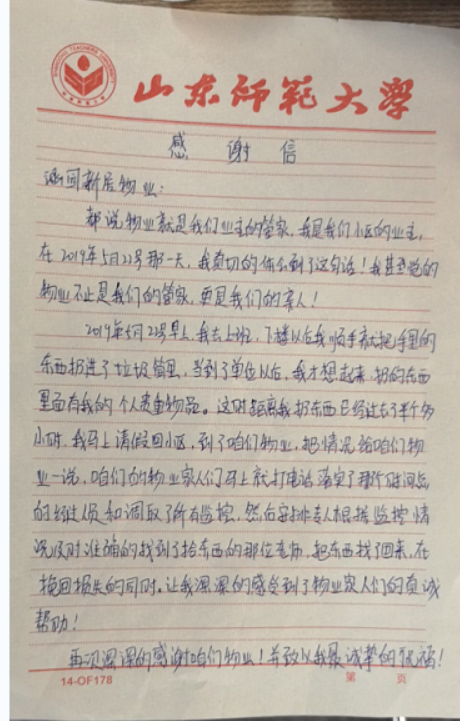 山东师范大学
感谢信
新居物业:
都说物业就是我们业主的管家,我是我们小区的业主,
在2019年5月22号那一天,我真切的体会到了这句话!我甚至觉的
物业不止是我们的管家,更是我们的亲人!
2019年5月22号早上,我去上班,下楼以后我顺手就把手里的
东西扔进了垃圾筒里,当到了单位以后,我才想起来,扔的东西
里面有我的个人贵重物品。这时距离我扔东西已经过去了半个多
小时,我马上请假回小区,到了咱们物业,把情况给咱们物
业一说,咱们的物业家人们马上就打电话落实了那个时间段
的人员和调取了所有监控,然后安排专人根据监控情
况及时准确的找到了拾东西的那位老师,把东西找了回来,在
挽回损失的同时,让我深深的感受到了物业家人们的真诚
帮助!
再次深深的感谢咱们物业!并致以我最诚挚的祝福!
14-OF178
第 页